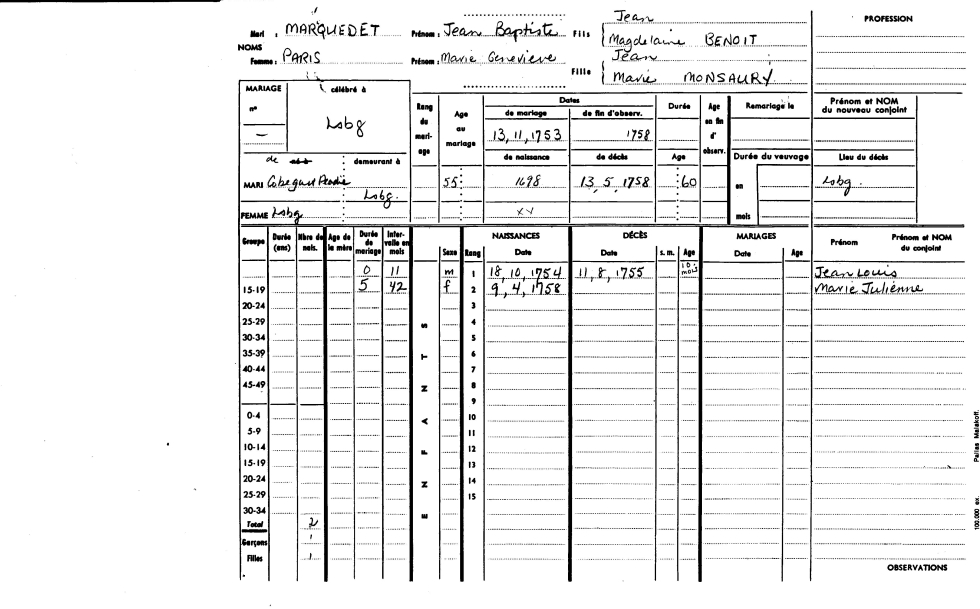 Jean
PROFESSION
Mari : MARQUEDET Prénom : Jean Baptiste Fils Magdelaine BENOIT
NOMS
Jean
Femme : PARIS Prénom : Marie Genevieve Fille Marie MONSAURY
MARIAGE célébré à
n° Lobg
—
Rang du mari- age
Age au mariage
Dates
de mariage de fin d'observ.
13, 11, 1753 1758
de naissance de décès
Durée
Age
Age en fin d' observ.
Remariage le
Prénom et NOM du nouveau conjoint
Durée du veuvage
Lieu du décès
de demeurant à
MARI Cobeguit Lobg. 55 1698 13, 5, 1758 60 en Lobg.
FEMME Lobg XV mois
Groupe Durée (ans) Nbre de nais. Age de la mère Durée de mariage Inter- valle en mois Sexe Rang NAISSANCES Date DÉCÈS Date s. m. Age MARIAGES Date Age Prénom Prénom et NOM du conjoint
0 11 m 1 18, 10, 1754 11, 8, 1755 10 mois Jean Louis
15-19 5 42 f 2 9, 4, 1758 Marie Julienne
20-24 3
25-29 S 4
30-34 5
35-39 T 6
40-44 7
45-49 N 8
9
0-4 A 10
5-9 11
10-14 F 12
15-19 13
20-24 N 14
25-29 15
30-34 E
Total 2
Garçons 1
Filles 1
OBSERVATIONS
100.000 ex. Pallas Malakoff.